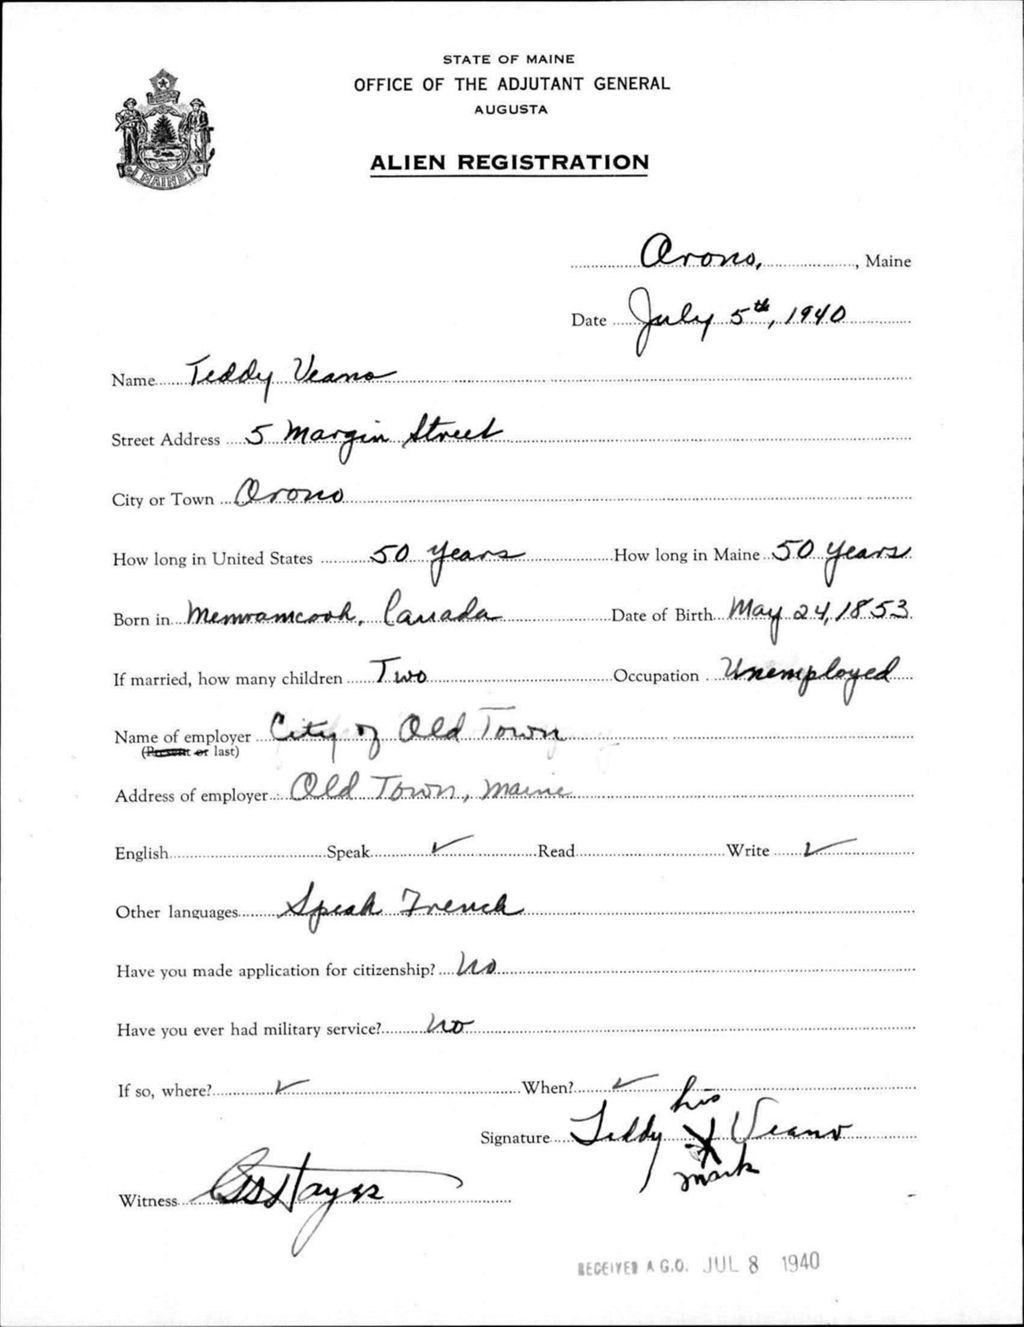 STATE OF MAINE
OFFICE OF THE ADJUTANT GENERAL
AUGUSTA
ALIEN REGISTRATION
MAINE
Orono, , Maine
Date July 5th, 1940
Name Teddy Veano
Street Address 5 Margin Street
City or Town Orono
How long in United States 50 years How long in Maine 50 years
Born in Memramcook, Canada Date of Birth May 24, 1853
If married, how many children Two Occupation Unemployed
Name of employer City of Old Town
(Present or last)
Address of employer Old Town, Maine
English Speak ✓ Read Write ✓
Other languages Speak French
Have you made application for citizenship? No
Have you ever had military service? No
If so, where? ✓ When? ✓
his
Signature Teddy X Veano
mark
Witness Hayes
RECEIVED A.G.O. JUL 8 1940